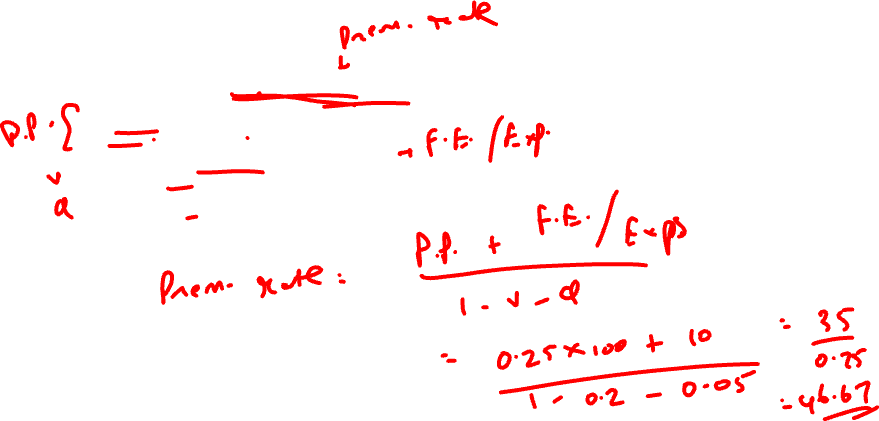 Prem. rate
P.P. { =
+ F.E. / Exp.
v
Q
Prem. rate = P.P. + F.E. / Exps
1 - v - Q
= 0.25 × 100 + 10 = 35
1 - 0.2 - 0.05 0.75
= 46.67